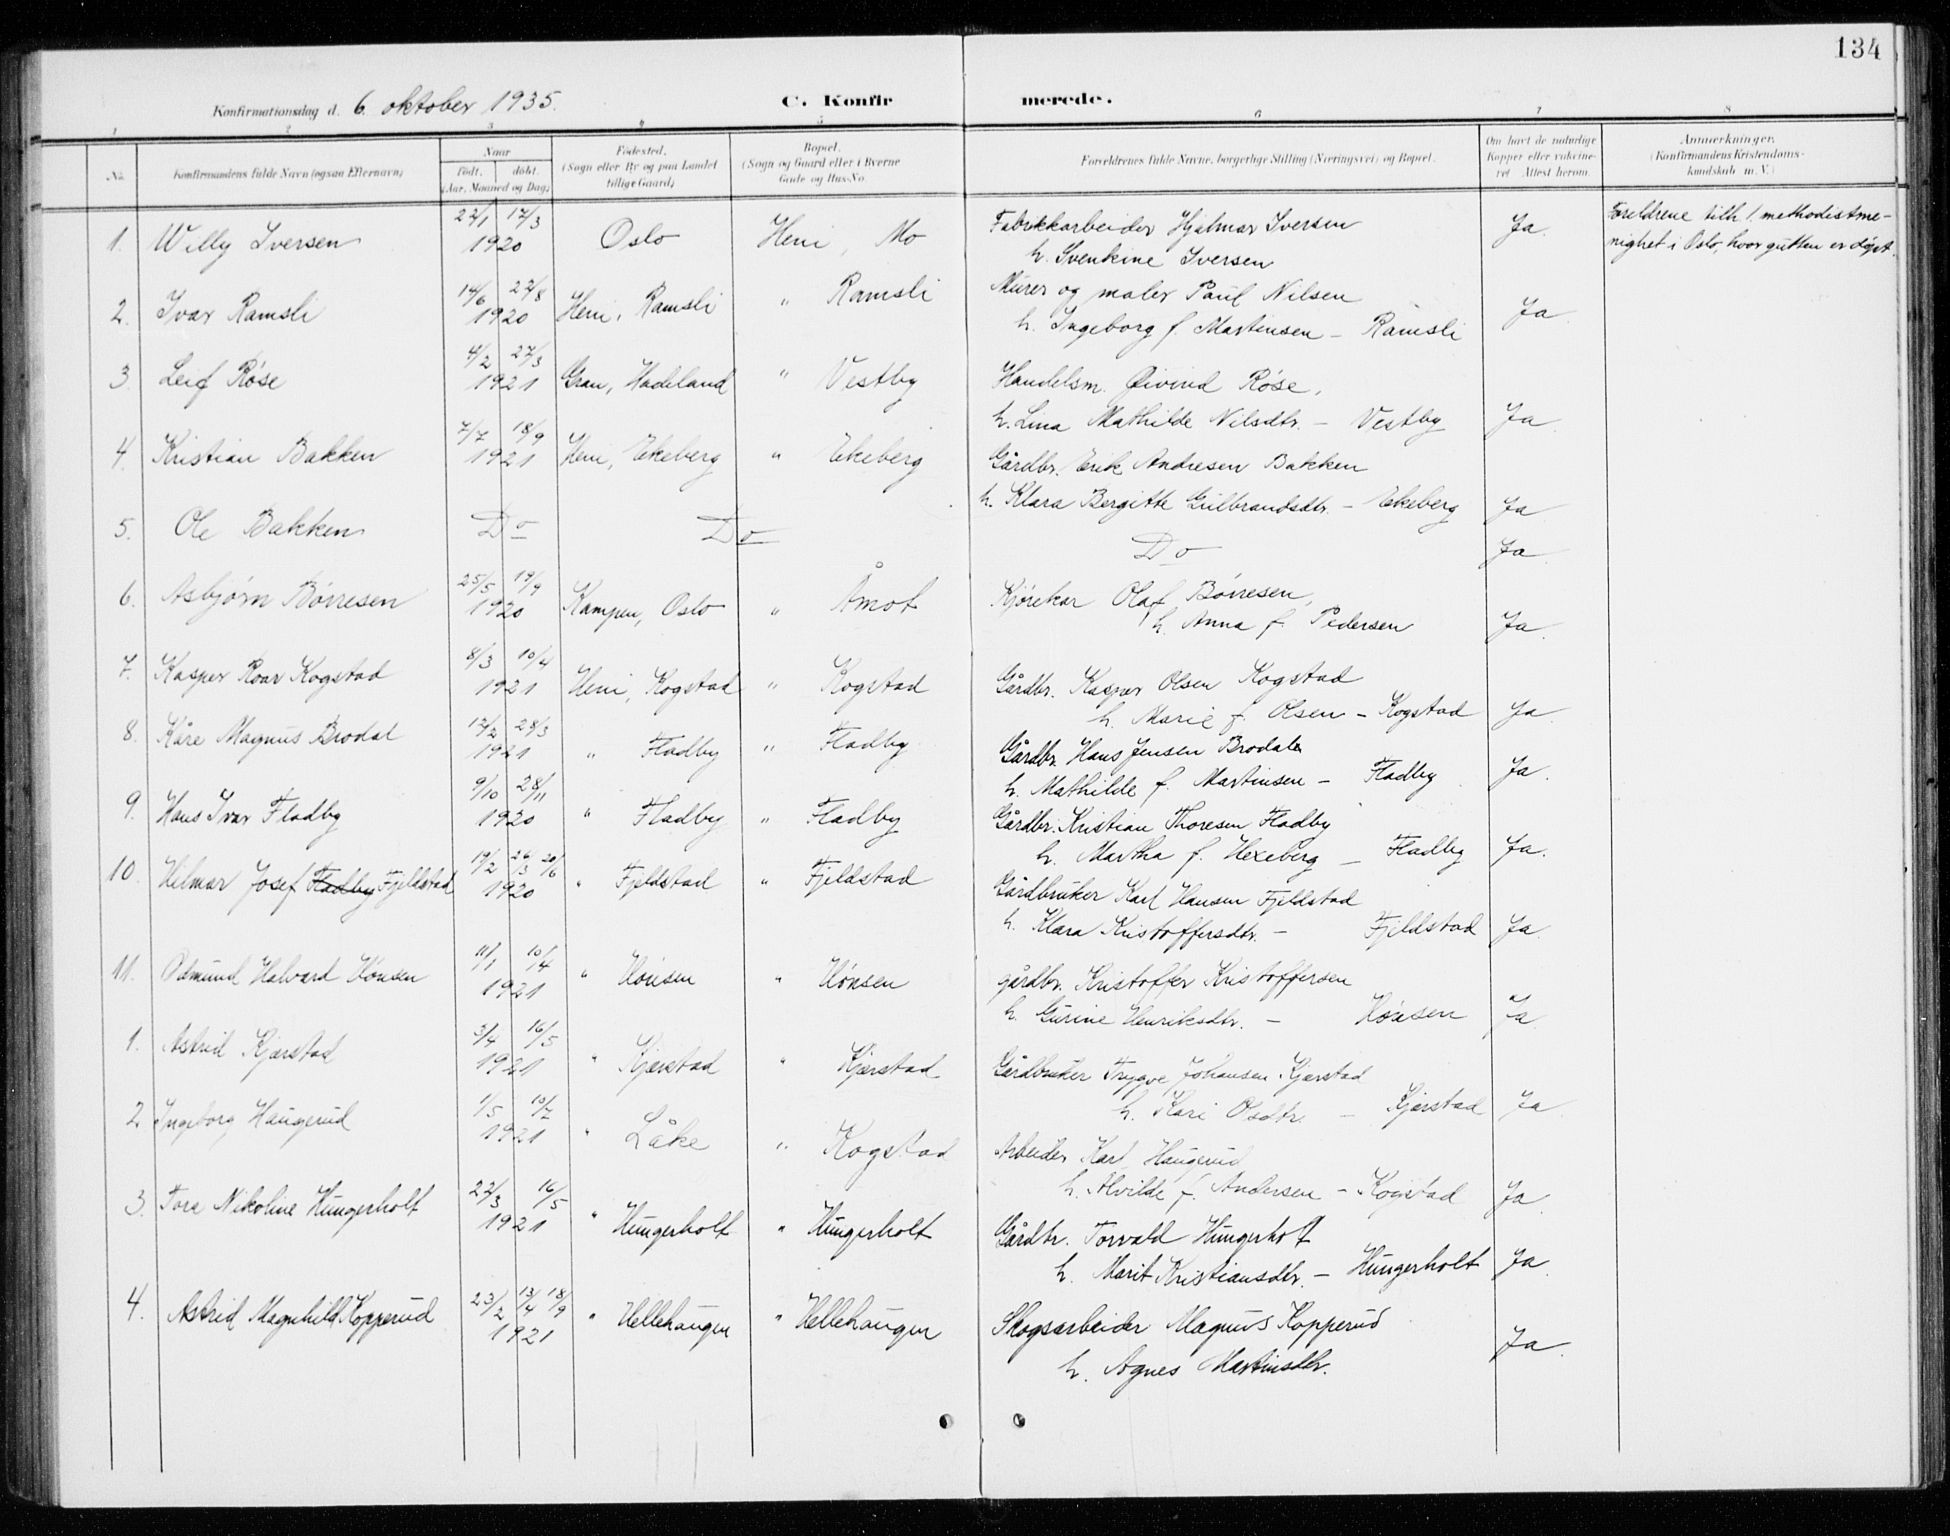 134
Konfirmationsdag d. 6. oktober 1935.
C. Konfirmerede.
1 2 3 4 5 6 7 8
No. Konfirmandens fulde Navn (ogsaa Efternavn) Naar født, døbt. (Aar, Maaned og Dag) Fødested. (Sogn eller By og paa Landet tillige Gaard) Bopæl. (Sogn og Gaard eller i Byerne Gade og Hus-No. Forældrenes fulde Navne, borgerlige Stilling (Næringsvei) og Bopæl. Om havt de naturlige Kopper eller vakcineret. Attest herom. Anmærkninger. (Konfirmandens Kristendomskundskab m. V.)
1. Willy Iversen 22/1 17/3 1920 Oslo Heni, Mo Fabrikkarbeider Hjalmar Iversen Ja. Foreldrene tilh. 1. methodistme-
h. Svenkine Iversen nighet i Oslo, hvor gutten er døpt.
2. Ivar Ramsli 14/6 22/8 1920 Heni, Ramsli " Ramsli Murer og maler Paul Nilsen
h. Ingeborg f. Martinsen – Ramsli Ja.
3. Leif Røse 4/2 27/3 1921 Gran, Hadeland " Vestby Handelsm. Øivind Røse,
h. Lina Mathilde Nilsdtr. – Vestby Ja.
4. Kristian Bakken 7/7 18/9 1921 Heni, Ekeberg " Ekeberg Gårdbr. Erik Andresen Bakken
h. Klara Bergitte Gulbrandsdtr. – Ekeberg Ja
5. Ole Bakken Do Do Do Ja
6. Asbjørn Børresen 25/5 19/9 1920 Kampen, Oslo " Åmot Kjørekar Olaf Børresen,
h. Anna f. Pedersen Ja.
7. Kasper Roar Kogstad 8/3 10/4 1921 Heni, Kogstad " Kogstad Gårdbr. Kasper Olsen Kogstad
h. Marie f. Olsen – Kogstad Ja
8. Kåre Magnus Brodal 12/2 28/3 1921 " Fladby " Fladby Gårdbr. Hans Jensen Brodal
h. Mathilde f. Martinsen – Fladby Ja.
9. Hans Ivar Fladby 9/10 28/11 1920 " Fladby " Fladby Gårdbr. Kristian Thoresen Fladby
h. Martha f. Hexeberg – Fladby Ja.
10. Hilmar Josef Fladby Fjeldstad 19/2 26/3 20/6 1920 " Fjeldstad " Fjeldstad Gårdbruker Karl Hansen Fjeldstad
h. Klara Kristoffersdtr. – Fjeldstad Ja
11. Odmund Halvard Hønsen 11/1 10/4 1921 " Hønsen " Hønsen gårdbr. Kristoffer Kristoffersen
h. Gurine Henriksdtr. – Hønsen Ja
1. Astrid Kjærstad 3/4 16/5 1921 " Kjærstad " Kjærstad Gårdbruker Trygve Johansen Kjærstad
h. Kari Olsdtr. – Kjærstad Ja
2. Ingeborg Haugerud 1/5 10/7 1921 " Låke " Kogstad Arbeider Karl Haugerud
h. Alvilde f. Andersen – Kogstad Ja
3. Tora Nikoline Hungerholt 22/3 16/5 1921 " Hungerholt " Hungerholt Gårdbr. Torvald Hungerholt
h. Marit Kristiansdtr. – Hungerholt Ja
4. Astrid Magnhild Kopperud 23/2 13/4 18/9 1921 " Hellehaugen " Hellehaugen Skogsarbeider Magnus Kopperud
h. Agnes Martinsdtr. Ja